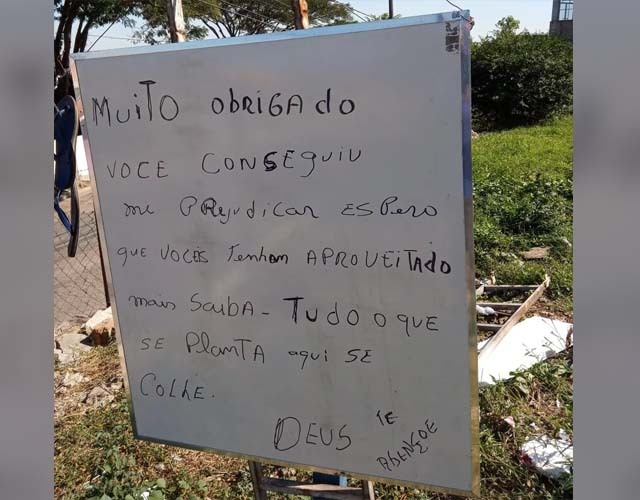 MUITO OBRIGADO
VOCE CONSEGUIU
me PRejudicar ESPERO
que voces tenham APROVEITADO
mais SAIBA - TUDO O QUE
SE PLANTA aqui SE
COLHE.
DEUS TE
ABENÇOE